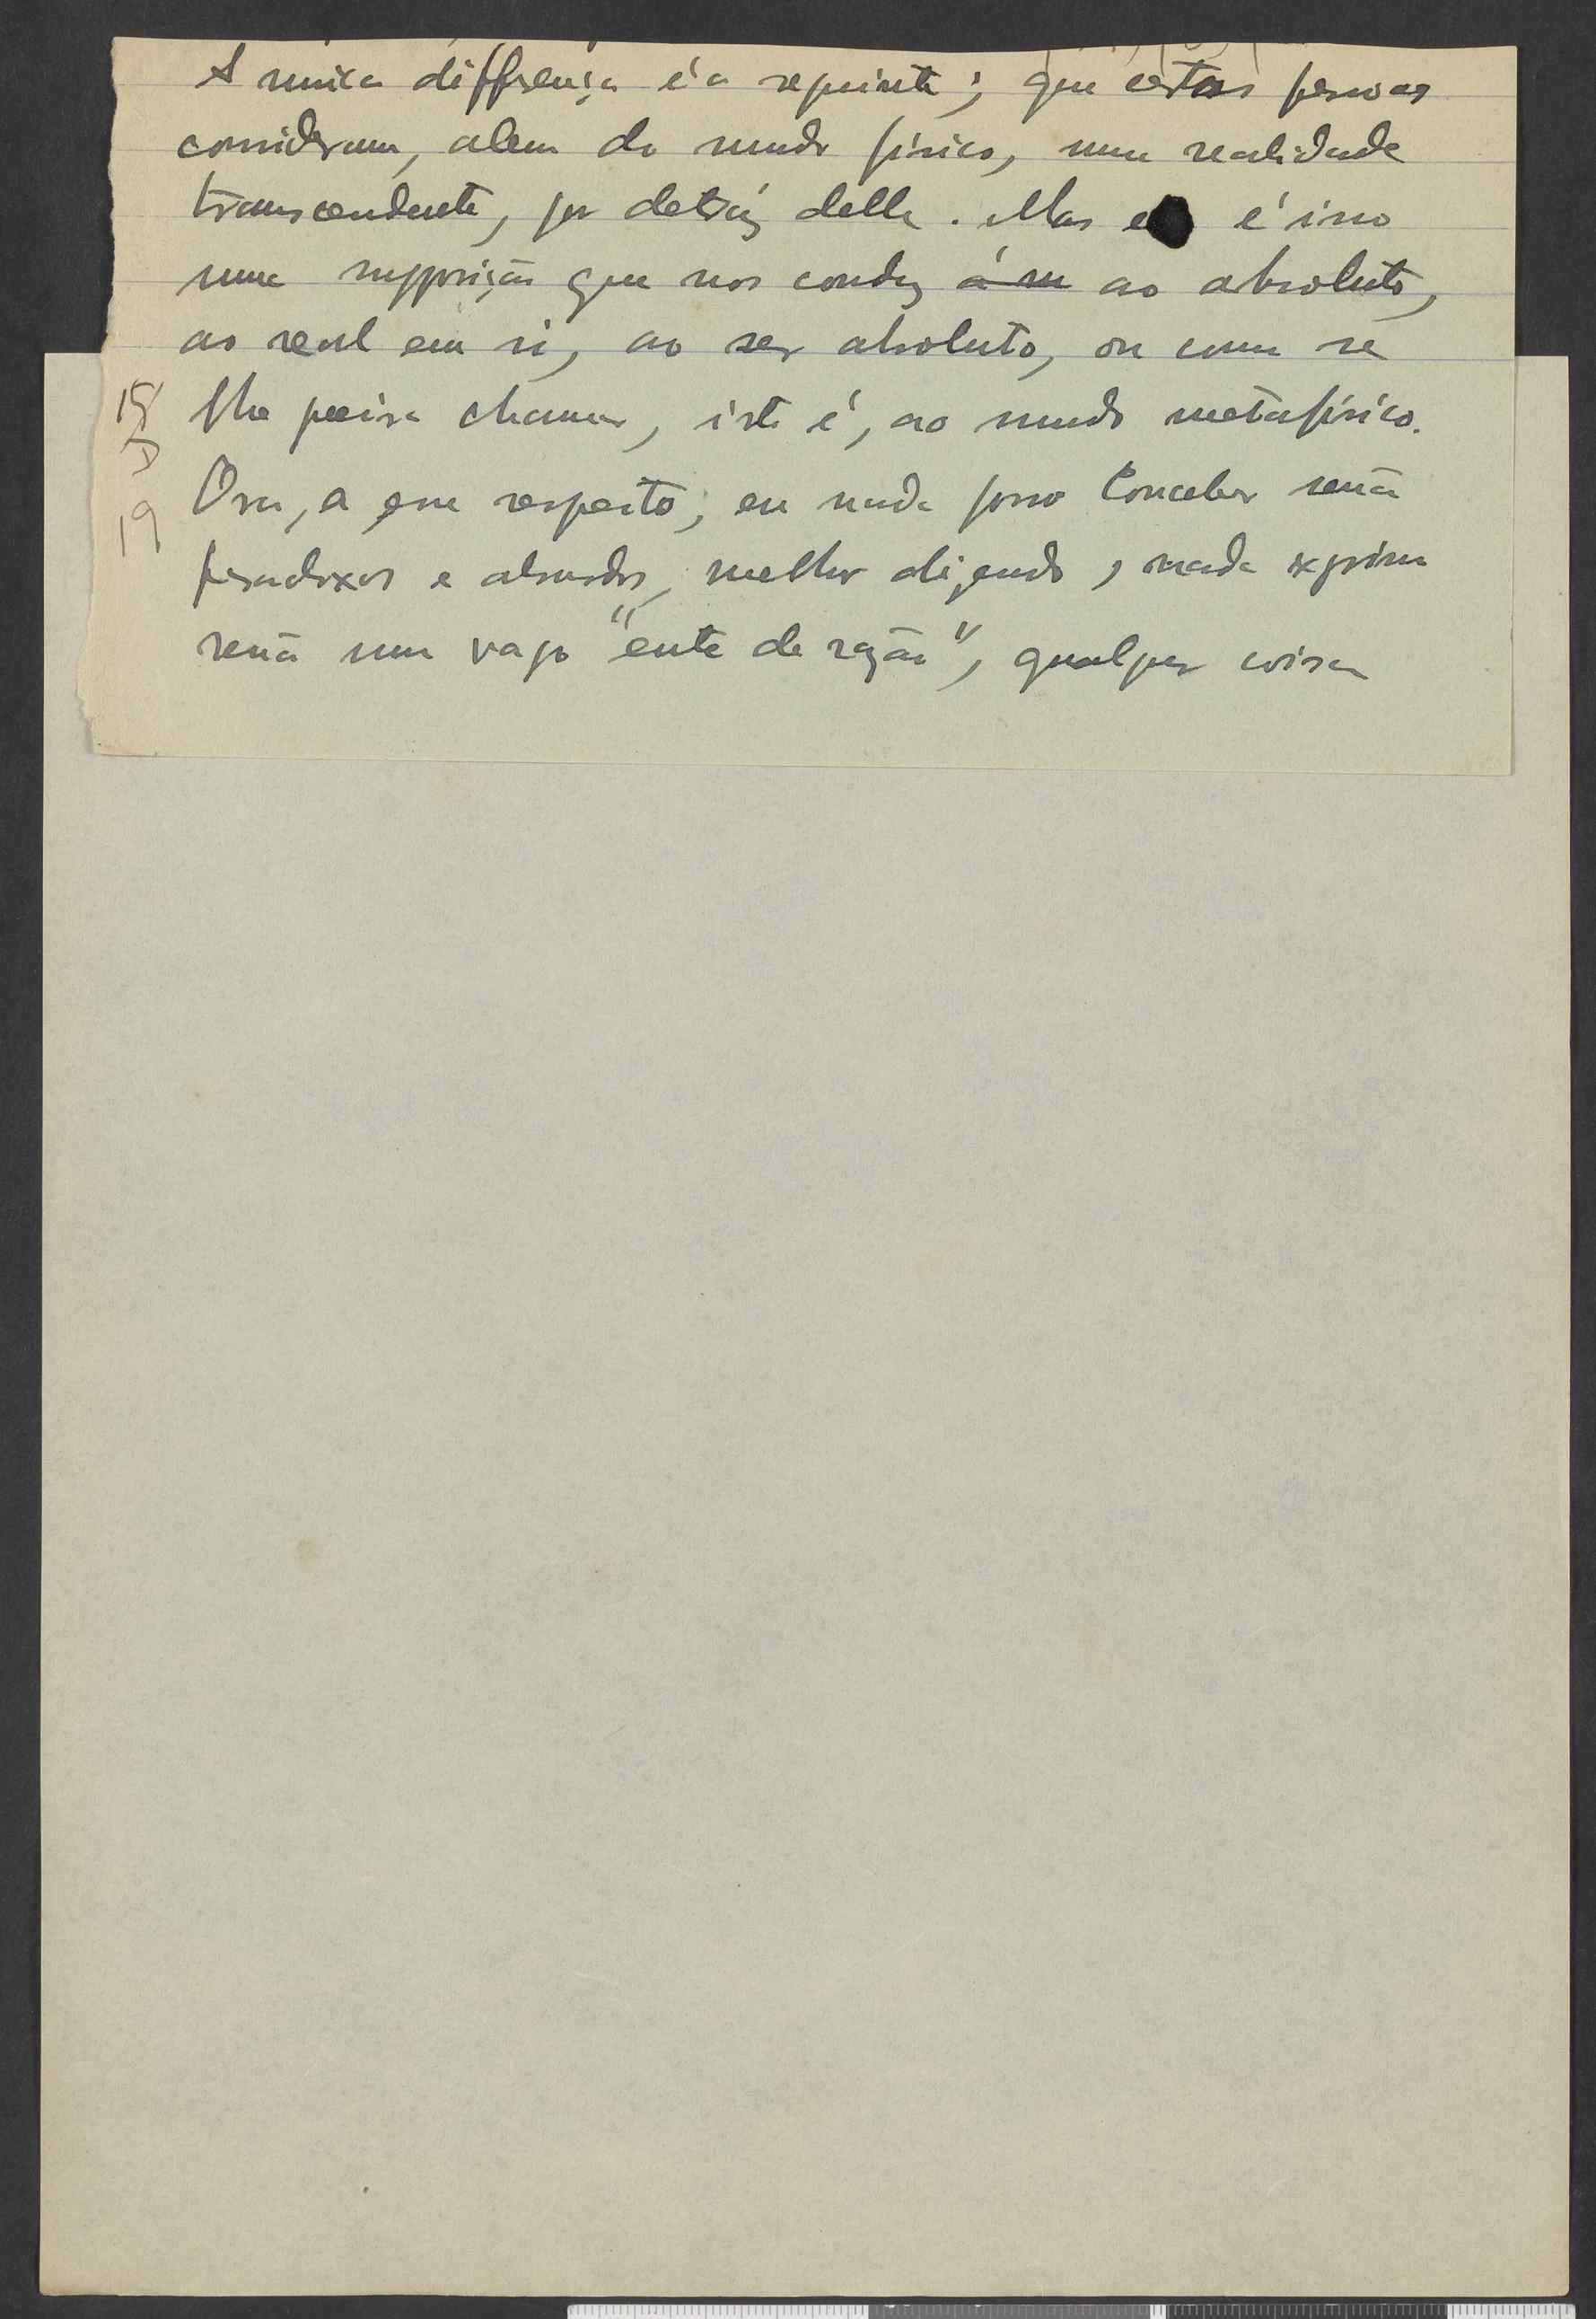 A unica differença é a seguinte; que estas pessoas
consideram, alem do mundo fisico, uma realidade
transcendente, por detráz delle. Mas é isso
uma supposição que nos conduz á m ao absoluto,
ao real em si, ao ser absoluto, ou como se
lhe queira chamar, isto é, ao mundo metafisico.
Ora, a esse respeito, eu nada posso conceber senão
paradoxos e absurdos, melhor dizendo, nada exprimo
senão um vago "ente de razão", qualquer coisa
19